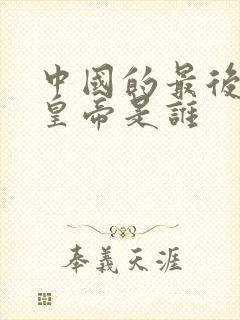 中國的最後
皇帝是誰
奉義天涯